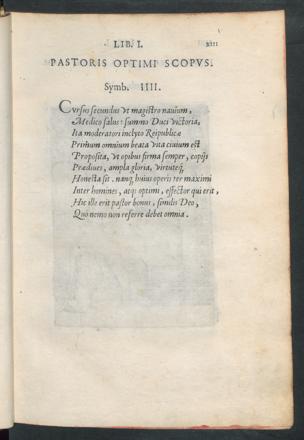 LIB. I. XIII
PASTORIS OPTIMI SCOPVS.
Symb. IIII.
Cursus secundus vt magistro nauium,
Medico salus: summo Duci victoria,
Ita moderatori inclyto Reipublicæ
Primum omnium beata vita ciuium est
Proposita, vt opibus firma semper, copijs
Prædiues, ampla gloria, virtuteq́;
Honesta sit. nanq; huius operis ter maximi
Inter homines, atq; optimi, effector qui erit,
Hic ille erit pastor bonus, similis Deo,
Quò nemo non referre debet omnia.